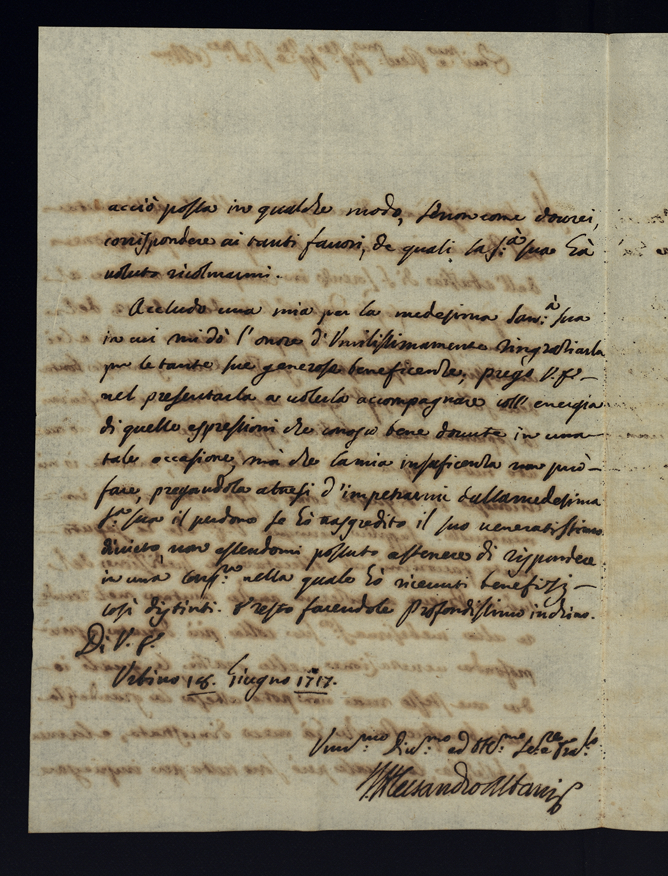 acciò possa in qualche modo, se non come dovrei,
corrispondere ai tanti favori, de quali la S.tà sua hà
voluto ricolmarmi.
Accludo una mia per la medesima San.tà sua
in cui mi dò l'onore d'Umilissimamente ringratiarla
per le tante sue generose beneficenze, prego V. S.
nel presentarla a volerla accompagnare coll'energia
di quelle espressioni che conosco bene dovute in una
tale occasione, mà che la mia insuficenza non può
fare, pregandola altresì d'impetrarmi dalla medesima
S.tà sua il perdono se hò trasgredito il suo veneratissimo
divieto, non essendomi possuto astenere di rispondere
in una nella quale hò ricevuti benefizj
così distinti. e resto facendole profondissimo inchino.
Di V. S.
Urbino 18. Giugno 1717.
Um.mo Div.mo ed
Alessandro Albani